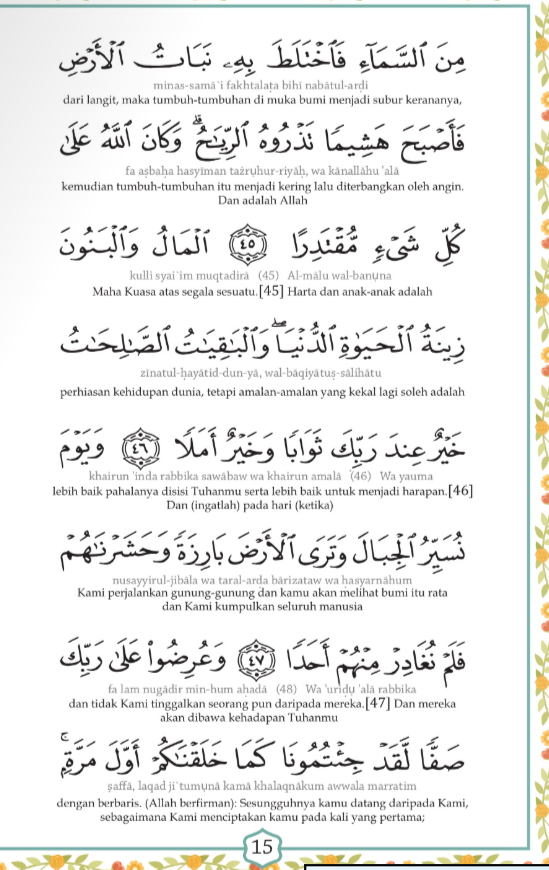 مِنَ ٱلسَّمَآءِ فَٱخْتَلَطَ بِهِۦ نَبَاتُ ٱلْأَرْضِ
minas-samā`i fakhtalaṭa bihī nabātul-arḍi
dari langit, maka tumbuh-tumbuhan di muka bumi menjadi subur kerananya,
فَأَصْبَحَ هَشِيمًا تَذْرُوهُ ٱلرِّيَـٰحُ ۗ وَكَانَ ٱللَّهُ عَلَىٰ
fa aṣbaḥa hasyīman tażrụhur-riyāḥ, wa kānallāhu 'alā
kemudian tumbuh-tumbuhan itu menjadi kering lalu diterbangkan oleh angin.
Dan adalah Allah
كُلِّ شَىْءٍ مُّقْتَدِرًا ٤٥ ٱلْمَالُ وَٱلْبَنُونَ
kulli syai`im muqtadirā (45) Al-mālu wal-banụna
Maha Kuasa atas segala sesuatu.[45] Harta dan anak-anak adalah
زِينَةُ ٱلْحَيَوٰةِ ٱلدُّنْيَا ۖ وَٱلْبَـٰقِيَـٰتُ ٱلصَّـٰلِحَـٰتُ
zīnatul-ḥayātid-dun-yā, wal-bāqiyātuṣ-ṣāliḥātu
perhiasan kehidupan dunia, tetapi amalan-amalan yang kekal lagi soleh adalah
خَيْرٌ عِندَ رَبِّكَ ثَوَابًا وَخَيْرٌ أَمَلًا ٤٦ وَيَوْمَ
khairun 'inda rabbika ṡawābaw wa khairun amalā (46) Wa yauma
lebih baik pahalanya disisi Tuhanmu serta lebih baik untuk menjadi harapan.[46]
Dan (ingatlah) pada hari (ketika)
نُسَيِّرُ ٱلْجِبَالَ وَتَرَى ٱلْأَرْضَ بَارِزَةً وَحَشَرْنَـٰهُمْ
nusayyirul-jibāla wa taral-arḍa bārizataw wa ḥasyarnāhum
Kami perjalankan gunung-gunung dan kamu akan melihat bumi itu rata
dan Kami kumpulkan seluruh manusia
فَلَمْ نُغَادِرْ مِنْهُمْ أَحَدًا ٤٧ وَعُرِضُوا۟ عَلَىٰ رَبِّكَ
fa lam nugādir min-hum aḥadā (48) Wa 'uriḍụ 'alā rabbika
dan tidak Kami tinggalkan seorang pun daripada mereka.[47] Dan mereka
akan dibawa kehadapan Tuhanmu
صَفًّا لَّقَدْ جِئْتُمُونَا كَمَا خَلَقْنَـٰكُمْ أَوَّلَ مَرَّةٍۭ ۚ
ṣaffā, laqad ji`tumụnā kamā khalaqnākum awwala marratim
dengan berbaris. (Allah berfirman): Sesungguhnya kamu datang daripada Kami,
sebagaimana Kami menciptakan kamu pada kali yang pertama;
15